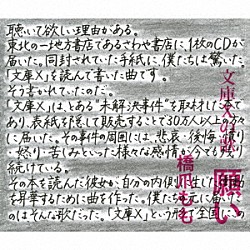 聴いて欲しい理由がある。
東北の一地方書店であるさわや書店に、1枚のCDが
届いた。同封されていた手紙に、僕たちは驚いた。
「文庫Xを読んで書いた曲です。」
そう書いれていたのだ。
「文庫X」は、とある“未解決事件”を取材した本で
あり、表紙を隠して販売することで30万人以上の方々
に届いた。その事件の周囲には、悲哀・後悔・憤り
・怒り・苦しみといった様々な感情が今でも残り
続けている。
その本を読んだ彼女が、自分の内側
を昇華するために曲を作った。僕たち
のはそんな歌だった。「文庫X」という
文庫Xの歌
願い
橋爪もも